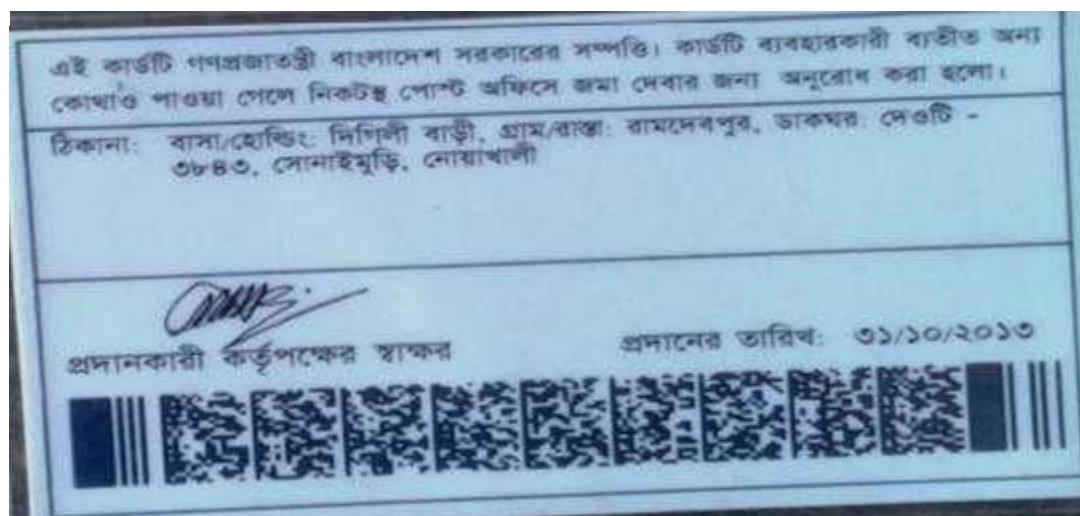 এই কার্ডটি গণপ্রজাতন্ত্রী বাংলাদেশ সরকারের সম্পত্তি। কার্ডটি ব্যবহারকারী ব্যতীত অন্য
কোথাও পাওয়া গেলে নিকটস্থ পোস্ট অফিসে জমা দেবার জন্য অনুরোধ করা হলো।
ঠিকানা: বাসা/হোল্ডিং: দিগিলী বাড়ী, গ্রাম/রাস্তা: রামদেবপুর, ডাকঘর: দেওটি -
৩৮৪৩, সোনাইমুড়ি, নোয়াখালী
প্রদানকারী কর্তৃপক্ষের স্বাক্ষর
প্রদানের তারিখ: ৩১/১০/২০১৩